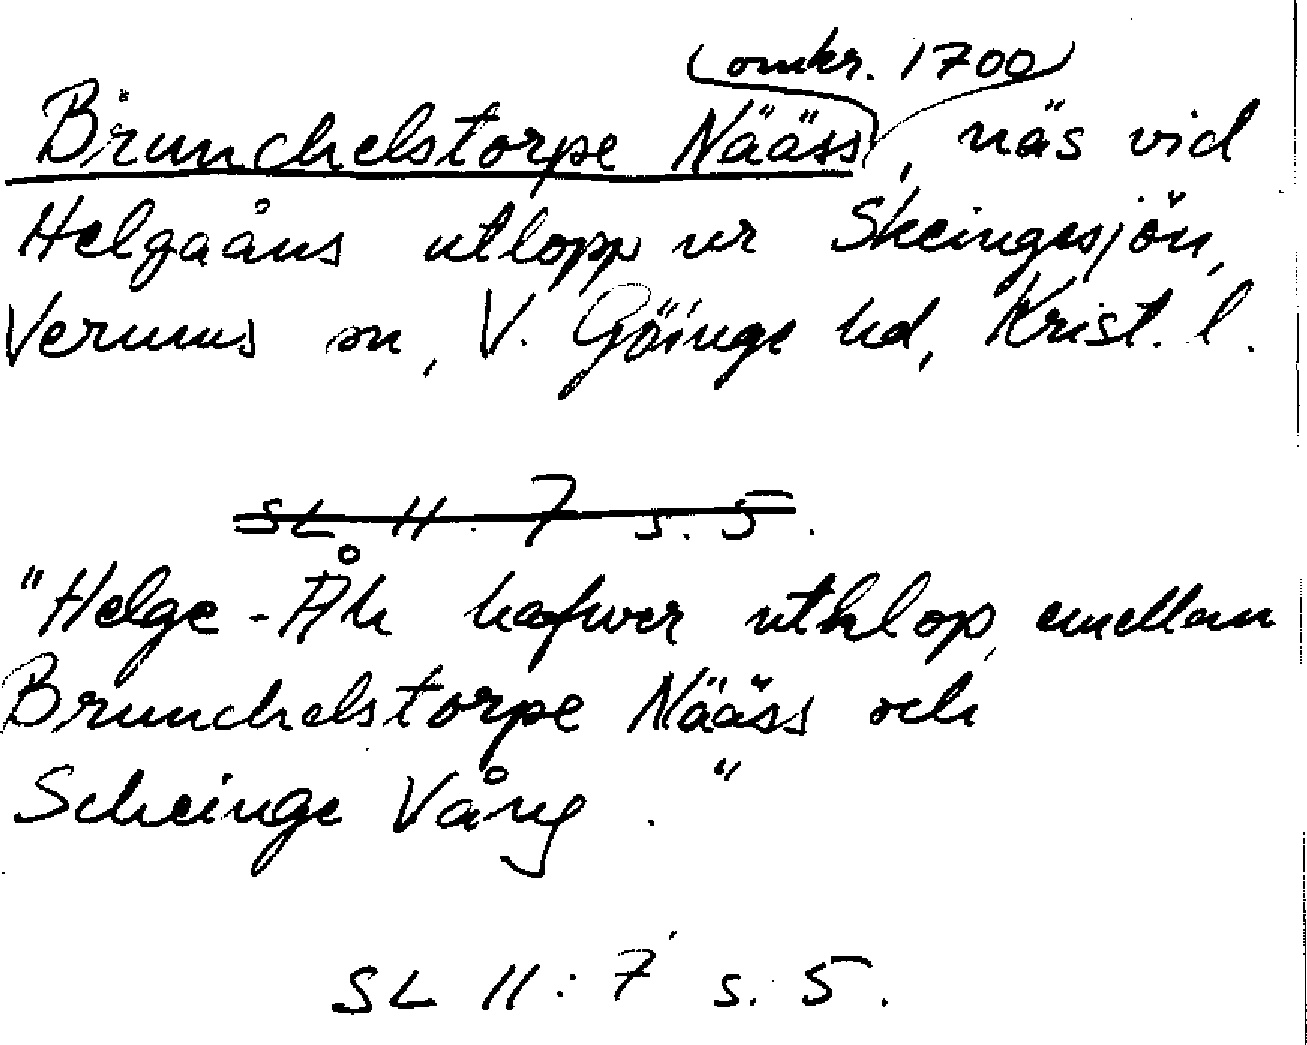 (omkr. 1700)
Brunchelstorpe Nääss, näs vid
Helgaåns utlopp ur Skeingesjön,
Verums sn, V. Göinge hd, Krist. l.
SL II. 7 s. 5.
"Helge-Åh hafwer uthlop emellan
Brunchelstorpe Nääss och
Scheinge Vång."
SL II: 7 s. 5.